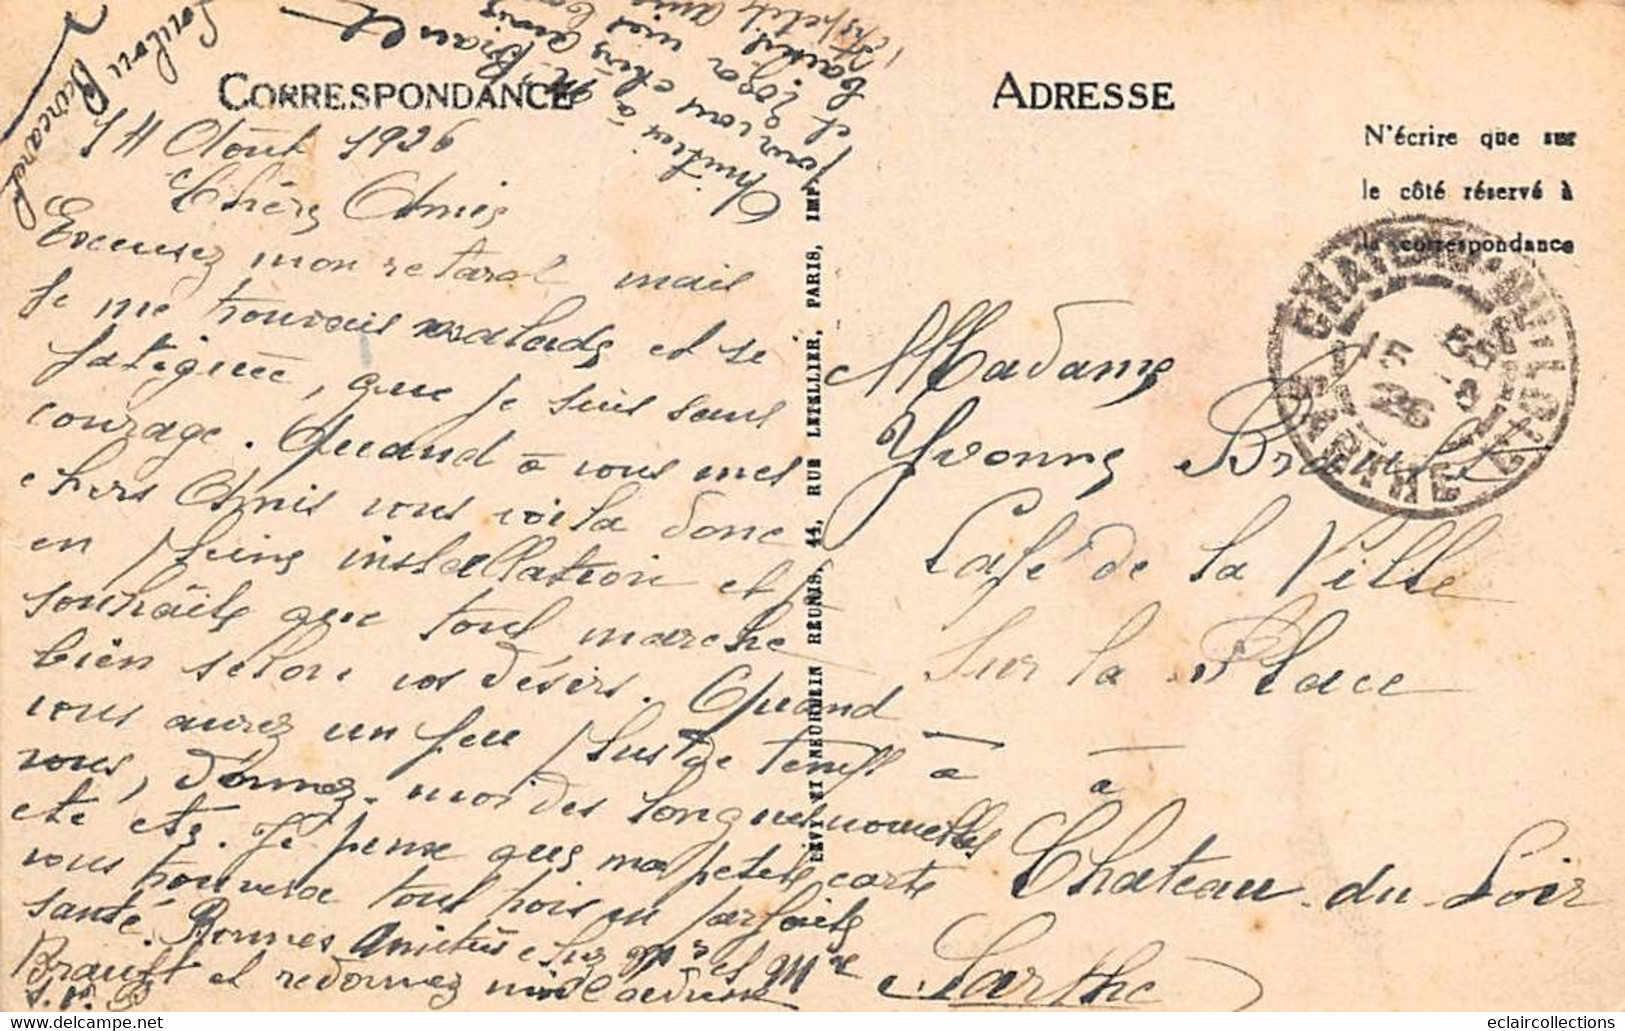 CORRESPONDANCE
14 Août 1926
Chers Amis
Excusez mon retard mais
je me trouvais malade et si
fatiguée, que je suis sans
courage. Quand à vous mes
chers Amis vous voila donc
en pleine installation et je
souhaite que tout marche
bien selon vos désirs. Quand
vous aurez un peu plus de temps à
vous, donnez-moi des longues nouvelles
etc etc. Je pense que ma petite carte
vous trouvera tous trois en parfaite
santé. Bonnes Amitiés chez Mr et Mme
Brault et redonnez moi l'adresse
S.V.P
Amitiés à Mr Brault
pour vous chers amis
et
ADRESSE
N'écrire que sur
le côté réservé à
la correspondance
Madame
Yvonne Brault
Café de la Ville
Sur la Place
à à
Chateau-du-Loir
Sarthe
CHATEAU-DU-LOIR
SARTHE
LÉVY ET NEURDEIN RÉUNIS, 44, RUE LETELLIER, PARIS, IMP.
eclaircollections